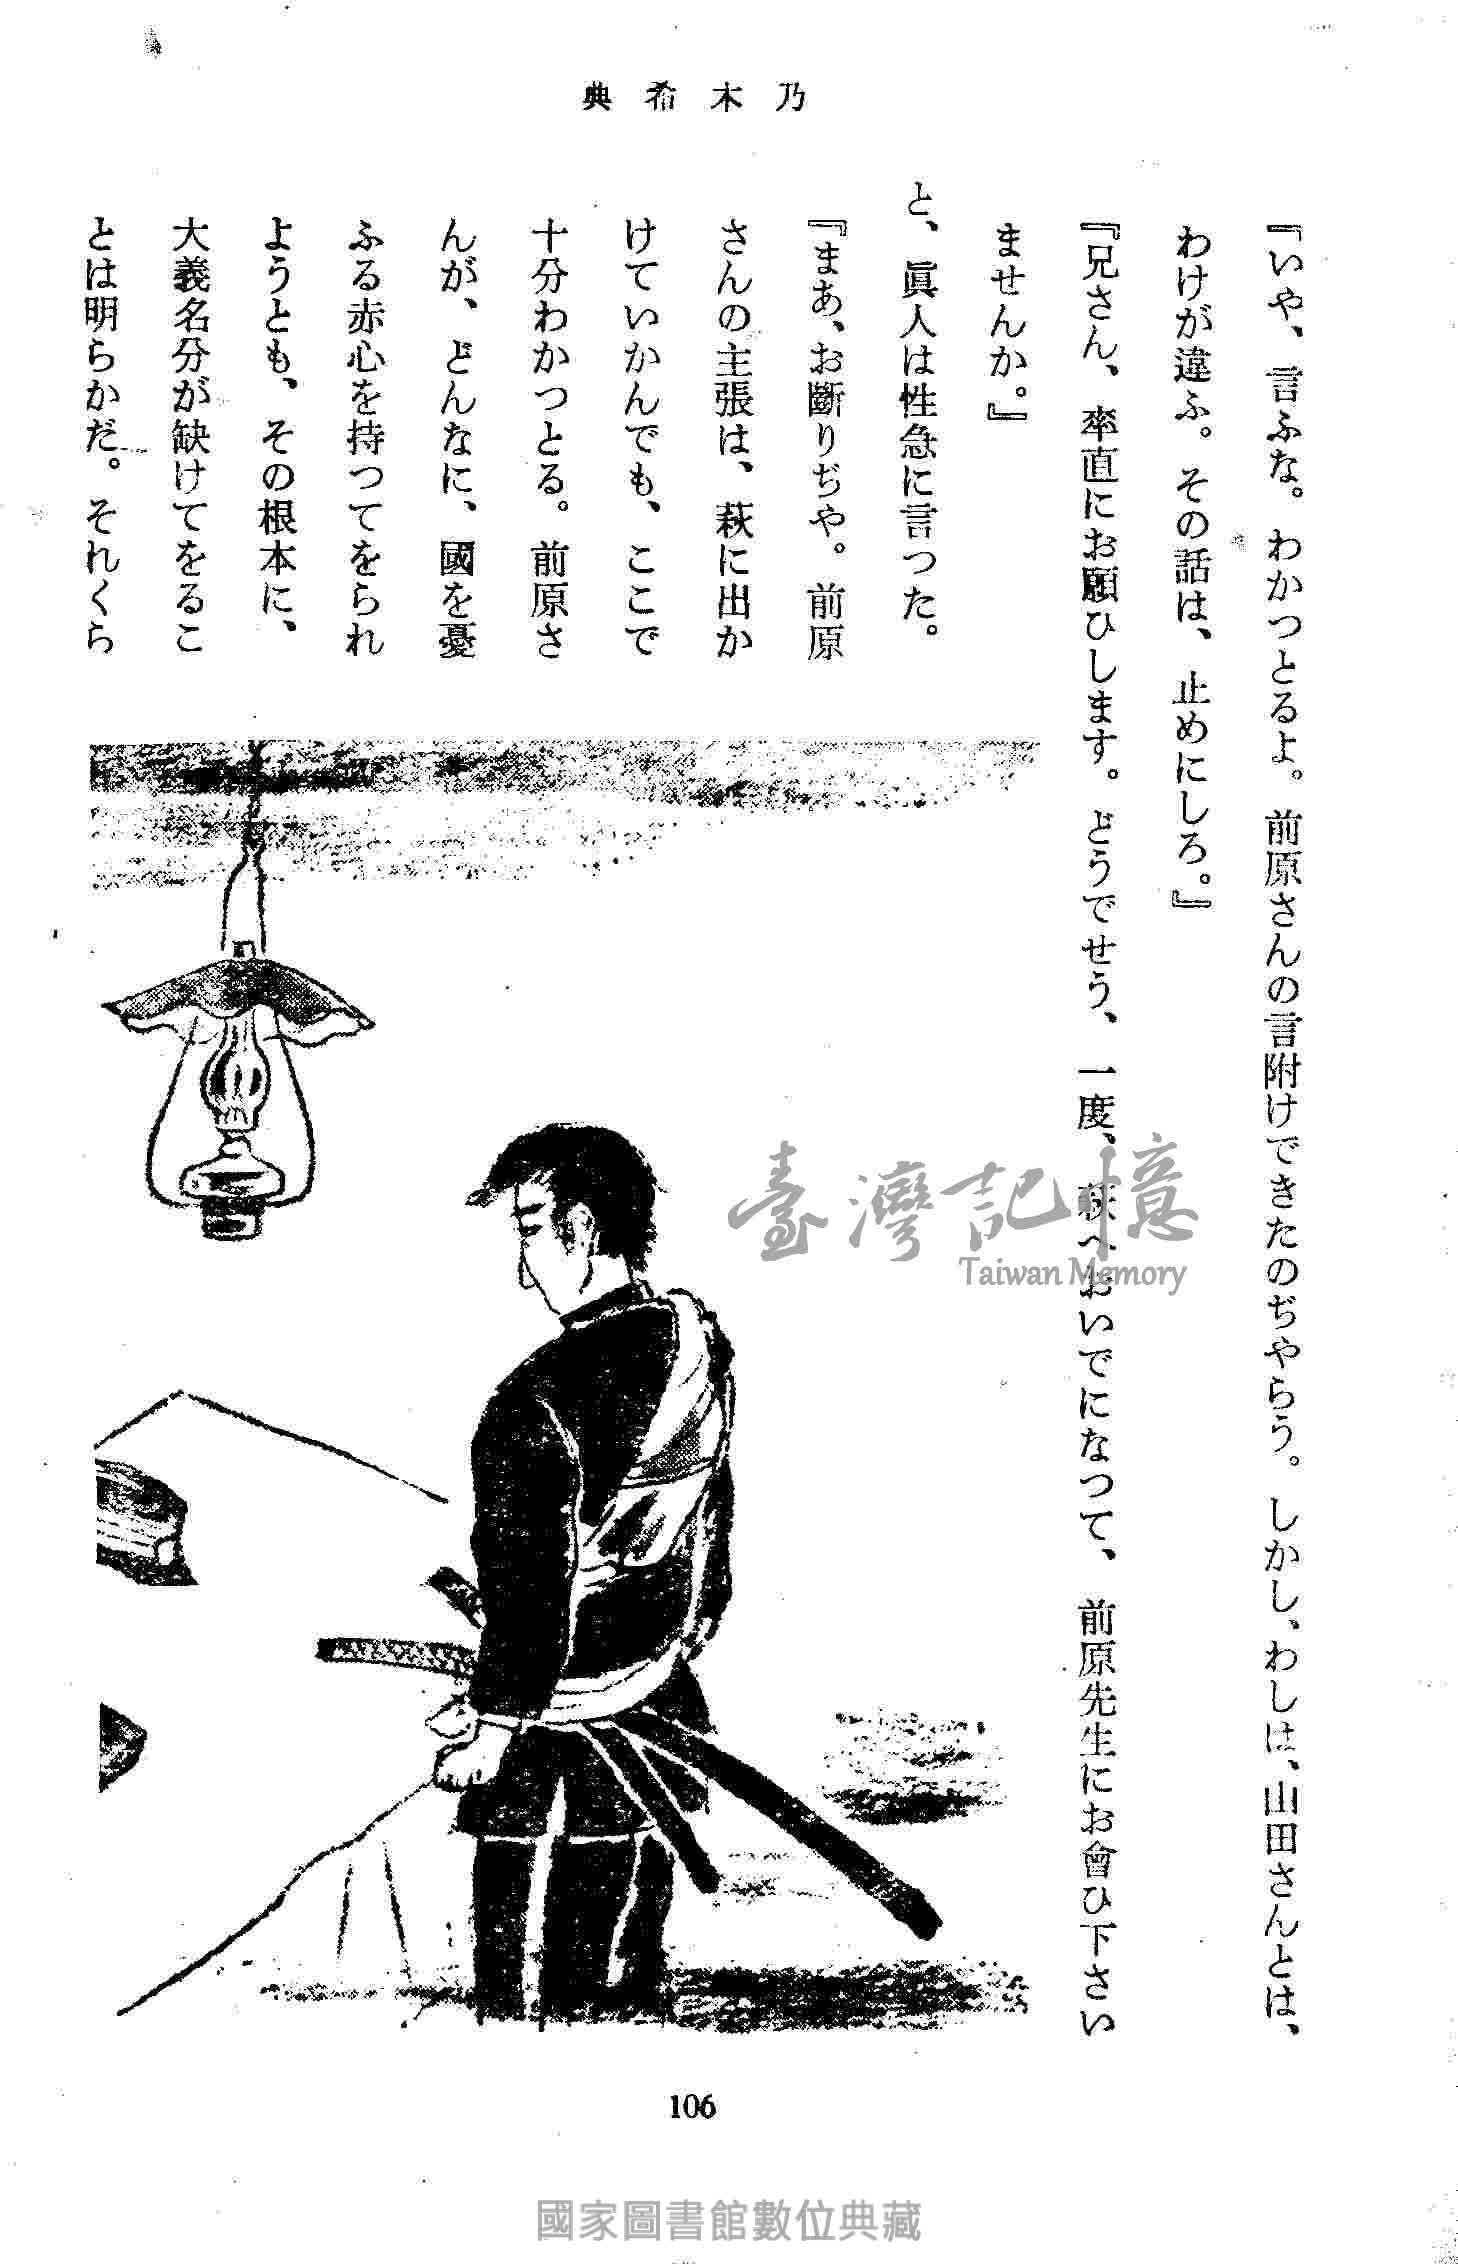 乃木希典
『いや、言ふな。わかつとるよ。前原さんの言附けできたのぢやらう。しかし、わしは、山田さんとは、
わけが違ふ。その話は、止めにしろ。』
『兄さん、率直にお願ひします。どうでせう、一度、萩へおいでになつて、前原先生にお會ひ下さい
ませんか。』
と、眞人は性急に言つた。
『まあ、お斷りぢや。前原
さんの主張は、萩に出か
けていかんでも、ここで
十分わかつとる。前原さ
んが、どんなに、國を憂
ふる赤心を持つてをられ
ようとも、その根本に、
大義名分が缺けてをるこ
とは明らかだ。それくら
臺灣記憶
Taiwan Memory
106
國家圖書館數位典藏